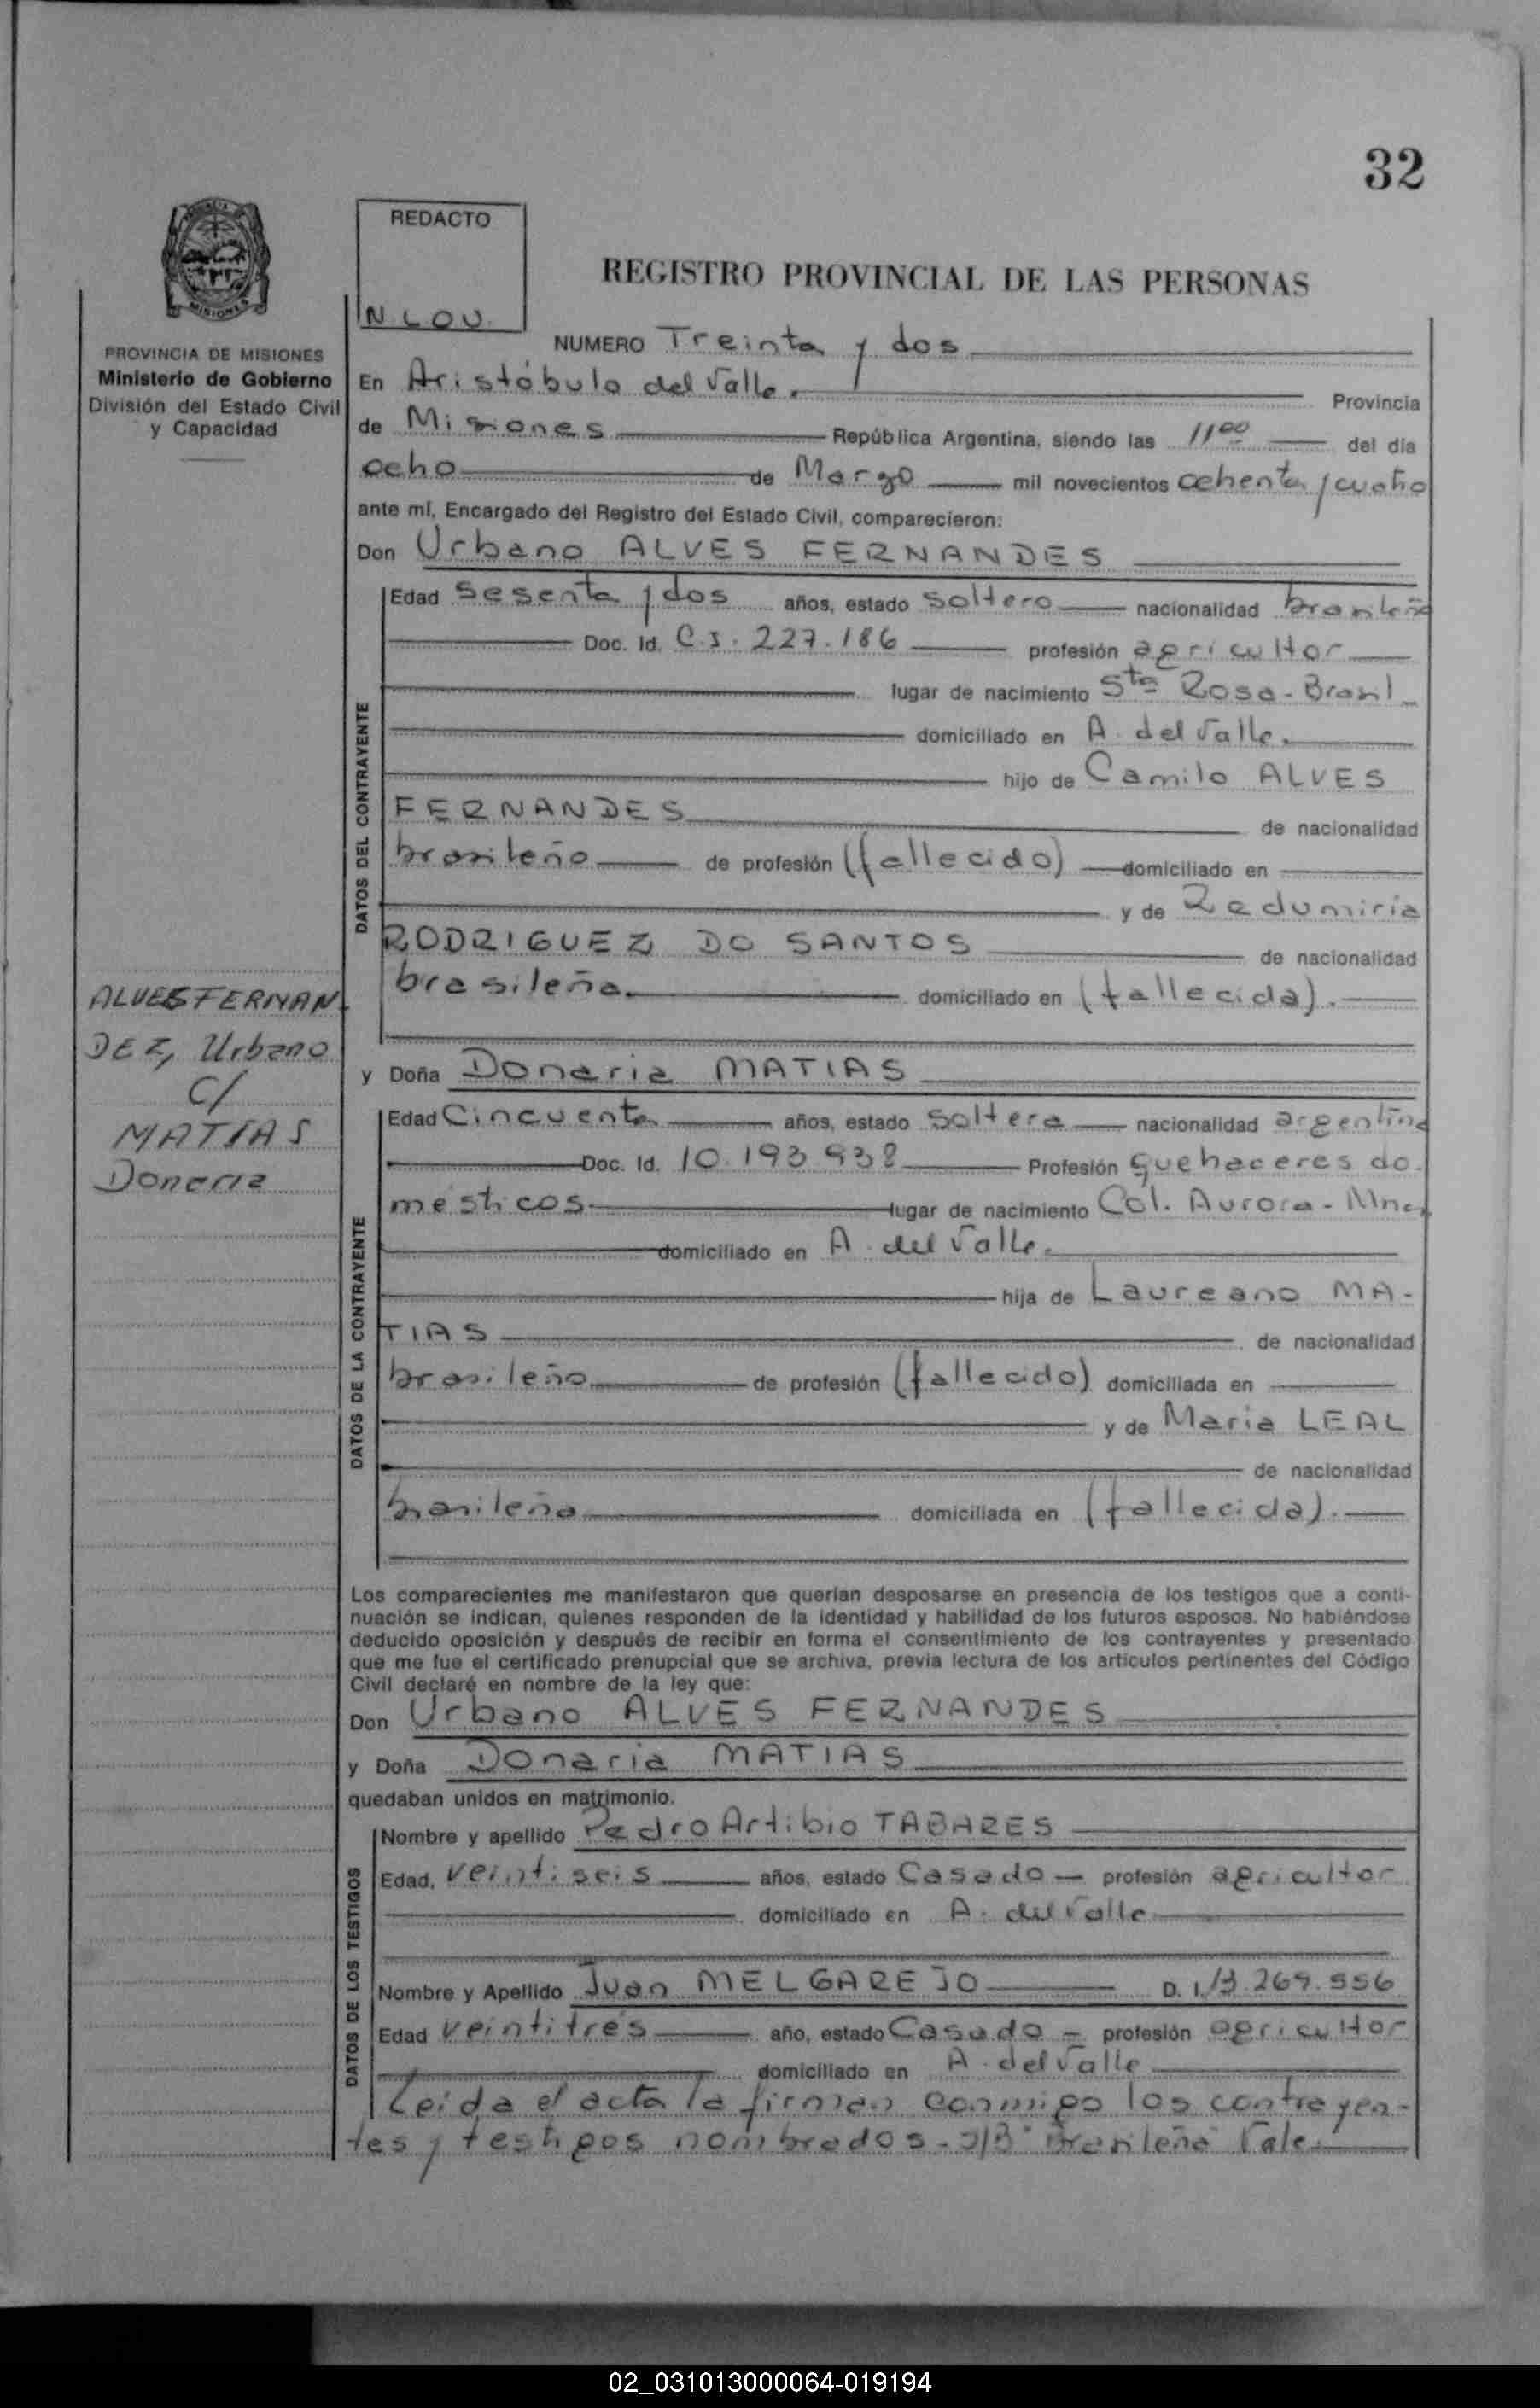 32
REDACTO
N LOV.
REGISTRO PROVINCIAL DE LAS PERSONAS
PROVINCIA DE MISIONES
Ministerio de Gobierno
División del Estado Civil
y Capacidad
NUMERO Treinta y dos
En Aristóbulo del Valle. Provincia
de Misiones República Argentina, siendo las 11 00 del día
ocho de Marzo mil novecientos ochenta y cuatro
ante mí, Encargado del Registro del Estado Civil, comparecieron:
Don Urbano ALVES FERNANDES
DATOS DEL CONTRAYENTE
Edad sesenta y dos años, estado soltero nacionalidad brasileño
Doc. Id. C.I. 227.186 profesión agricultor
lugar de nacimiento Sta Rosa - Brasil
domiciliado en A. del Valle.
hijo de Camilo ALVES
FERNANDES de nacionalidad
brasileño de profesión (fallecido) domiciliado en
y de
RODRIGUEZ DO SANTOS de nacionalidad
brasileña. domiciliado en (fallecida).
ALVES FERNAN
DEZ, Urbano
C/
MATIAS
Donaria
y Doña Donaria MATIAS
DATOS DE LA CONTRAYENTE
Edad Cincuenta años, estado soltera nacionalidad argentina
Doc. Id. 10.193.938 Profesión quehaceres do-
mésticos lugar de nacimiento Col. Aurora - Mnes
domiciliado en A. del Valle.
hija de Laureano MA-
TIAS de nacionalidad
brasileño de profesión (fallecido) domiciliada en
y de Maria LEAL
de nacionalidad
brasileña domiciliada en (fallecida).
Los comparecientes me manifestaron que querían desposarse en presencia de los testigos que a conti-
nuación se indican, quienes responden de la identidad y habilidad de los futuros esposos. No habiéndose
deducido oposición y después de recibir en forma el consentimiento de los contrayentes y presentado
que me fue el certificado prenupcial que se archiva, previa lectura de los artículos pertinentes del Código
Civil declaré en nombre de la ley que:
Don Urbano ALVES FERNANDES
y Doña Donaria MATIAS
quedaban unidos en matrimonio.
DATOS DE LOS TESTIGOS
Nombre y apellido Pedro Artibio TABARES
Edad, veintiseis años, estado Casado profesión agricultor
domiciliado en A. del Valle
Nombre y Apellido Juan MELGAREJO D. I. 13.269.556
Edad veintitrés año, estado Casado profesión agricultor
domiciliado en A. del Valle
Leida el acta la firman conmigo los contrayen-
tes y testigos nombrados. S/B "Brasileña" Vale.
02_031013000064-019194